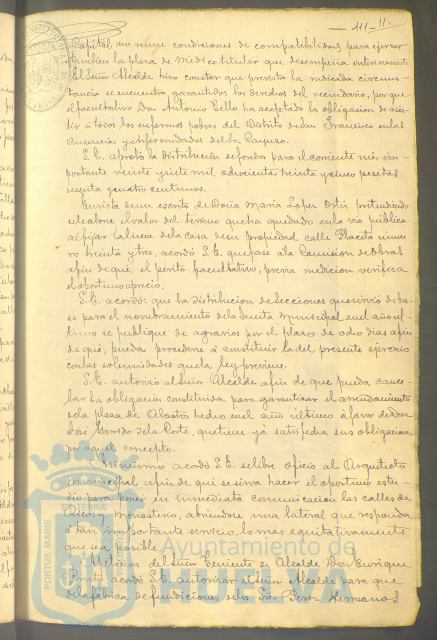 111 - 11
Capital no reune condiciones de compatibilidad para ejercer
tambien la plaza de Medico titular que desempeña interinamente
El Señor Alcalde hizo constar que prevista la indicada circuns-
tancia se encuentra garantidos los derechos del vecindario, porque
el facultativo Don Antonio Tello ha aceptado la obligacion de asis-
tir à todos los enfermos pobres del Distrito de San Francisco en las
Ausencias y enfermedades del Sr.
S.E. aprobó la distribución de fondos para el corriente mes im-
portante veinte y siete mil doscientas treinta y cinco pesetas
sesenta y cuatro centimos.
En vista de un escrito de Doña Maria Lopez Ortiz pretendiendo
se le abone el valor del terreno que ha quedado en la via publica
al fijar la linea de la casa de su propiedad calle Placeta nume-
ro treinta y tres, acordó S.E. que pase à la Comision de Obras
afin de que, el perito facultativo, previa medicion verifique
el oportuno aprecio.
S.E. acordó: que la distribucion de Secciones que sirvió de ba-
se para el nombramiento de la Junta Municipal en el año úl-
timo se publique de agravios por el plazo de ocho dias afin
de que, pueda procederse à constituir la del presente ejercicio
con las solemnidades que la ley previene.
S.E. autorizó al Señor Alcalde afin de que pueda cance-
lar la obligacion constituida para garantizar el arrendamiento
de la plaza de Abastos hecho en el año último à favor de Don
José Garrido de la Corte, que tiene ya satisfecha sus obligaciones
por aquel concepto.
Asimismo acordó S.E. se libre oficio al Arquitecto
municipal afin de que se sirva hacer el oportuno estu-
dio para poner en inmediata comunicacion las calles de
Ricos y Monasterio, abriendose una lateral que responda
à tan importante servicio, lo más equitativamente
que sea posible
A Mocion del Señor Teniente de Alcalde Don Enrique
acordó S.E. autorizar al Señor Alcalde para que
de la fabrica de fundiciones de los Sres Perez Hermanos
PORTUS MARIS
Ayuntamiento de
HUELVA